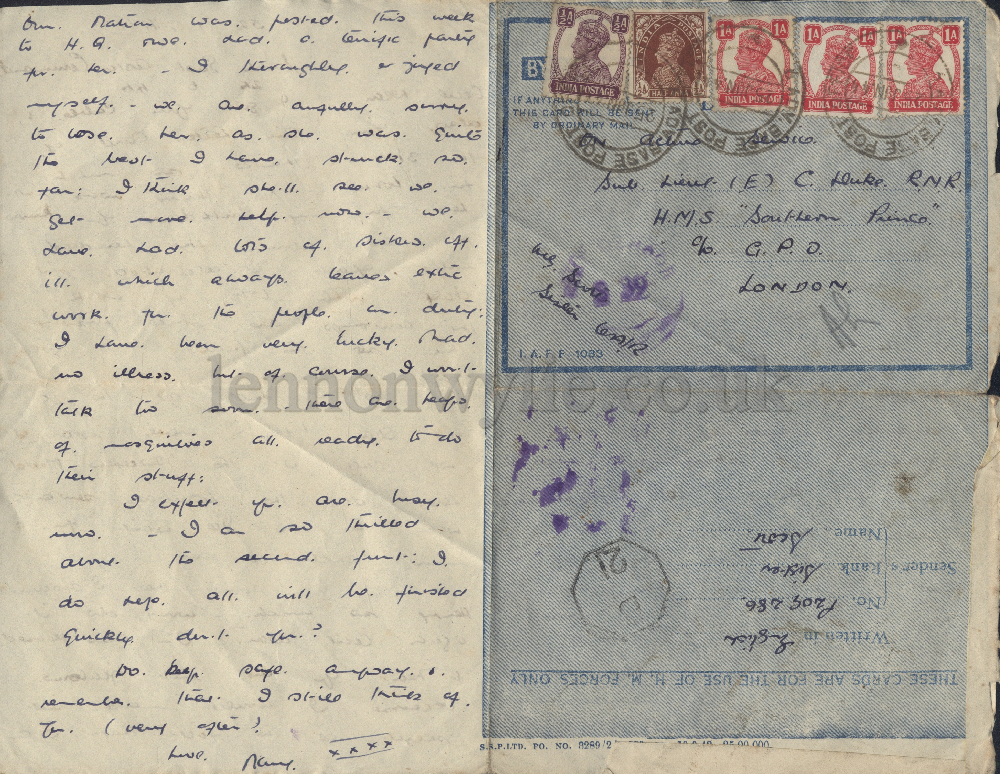 Our Matron was posted this week
to H.Q. & we had a terrific party
for her - I thoroughly enjoyed
myself - we are awfully sorry
to lose her as she was quite
the best I have struck so
far: I think she'll see we
get more help now - we
have had lots of sisters off
ill which always leaves extra
work for the people on duty:
I have been very lucky & had
no illness, but of course I won't
talk too soon - there are heaps
of mosquitoes all ready to do
their stuff:
I expect you are busy
now. - I am so thrilled
about the second front: I
do hope all will be finished
quickly don't you?
Do keep safe anyway &
remember that I still think of
you. (very often)
Love. Mary. xxxx
½A ½A
INDIA POSTAGE
1A INDIA POSTAGE
1A INDIA POSTAGE
1A INDIA POSTAGE
BY
IF ANYTHING
THIS CARD WILL BE SENT
BY ORDINARY MAIL
BASE POST
On Active Service
Sub Lieut (E) C. Duke R.N.R.
H.M.S "Southern Prince"
c/o G.P.O.
LONDON.
Scott
Sister
I.A.F.F. 1033
lennonwylie.co.uk
21
Name Scott
Sender's Rank Sister
No. P209286
Written in English
THESE CARDS ARE FOR THE USE OF H.M. FORCES ONLY
S.A.P.LTD. PO. NO. 3289/2